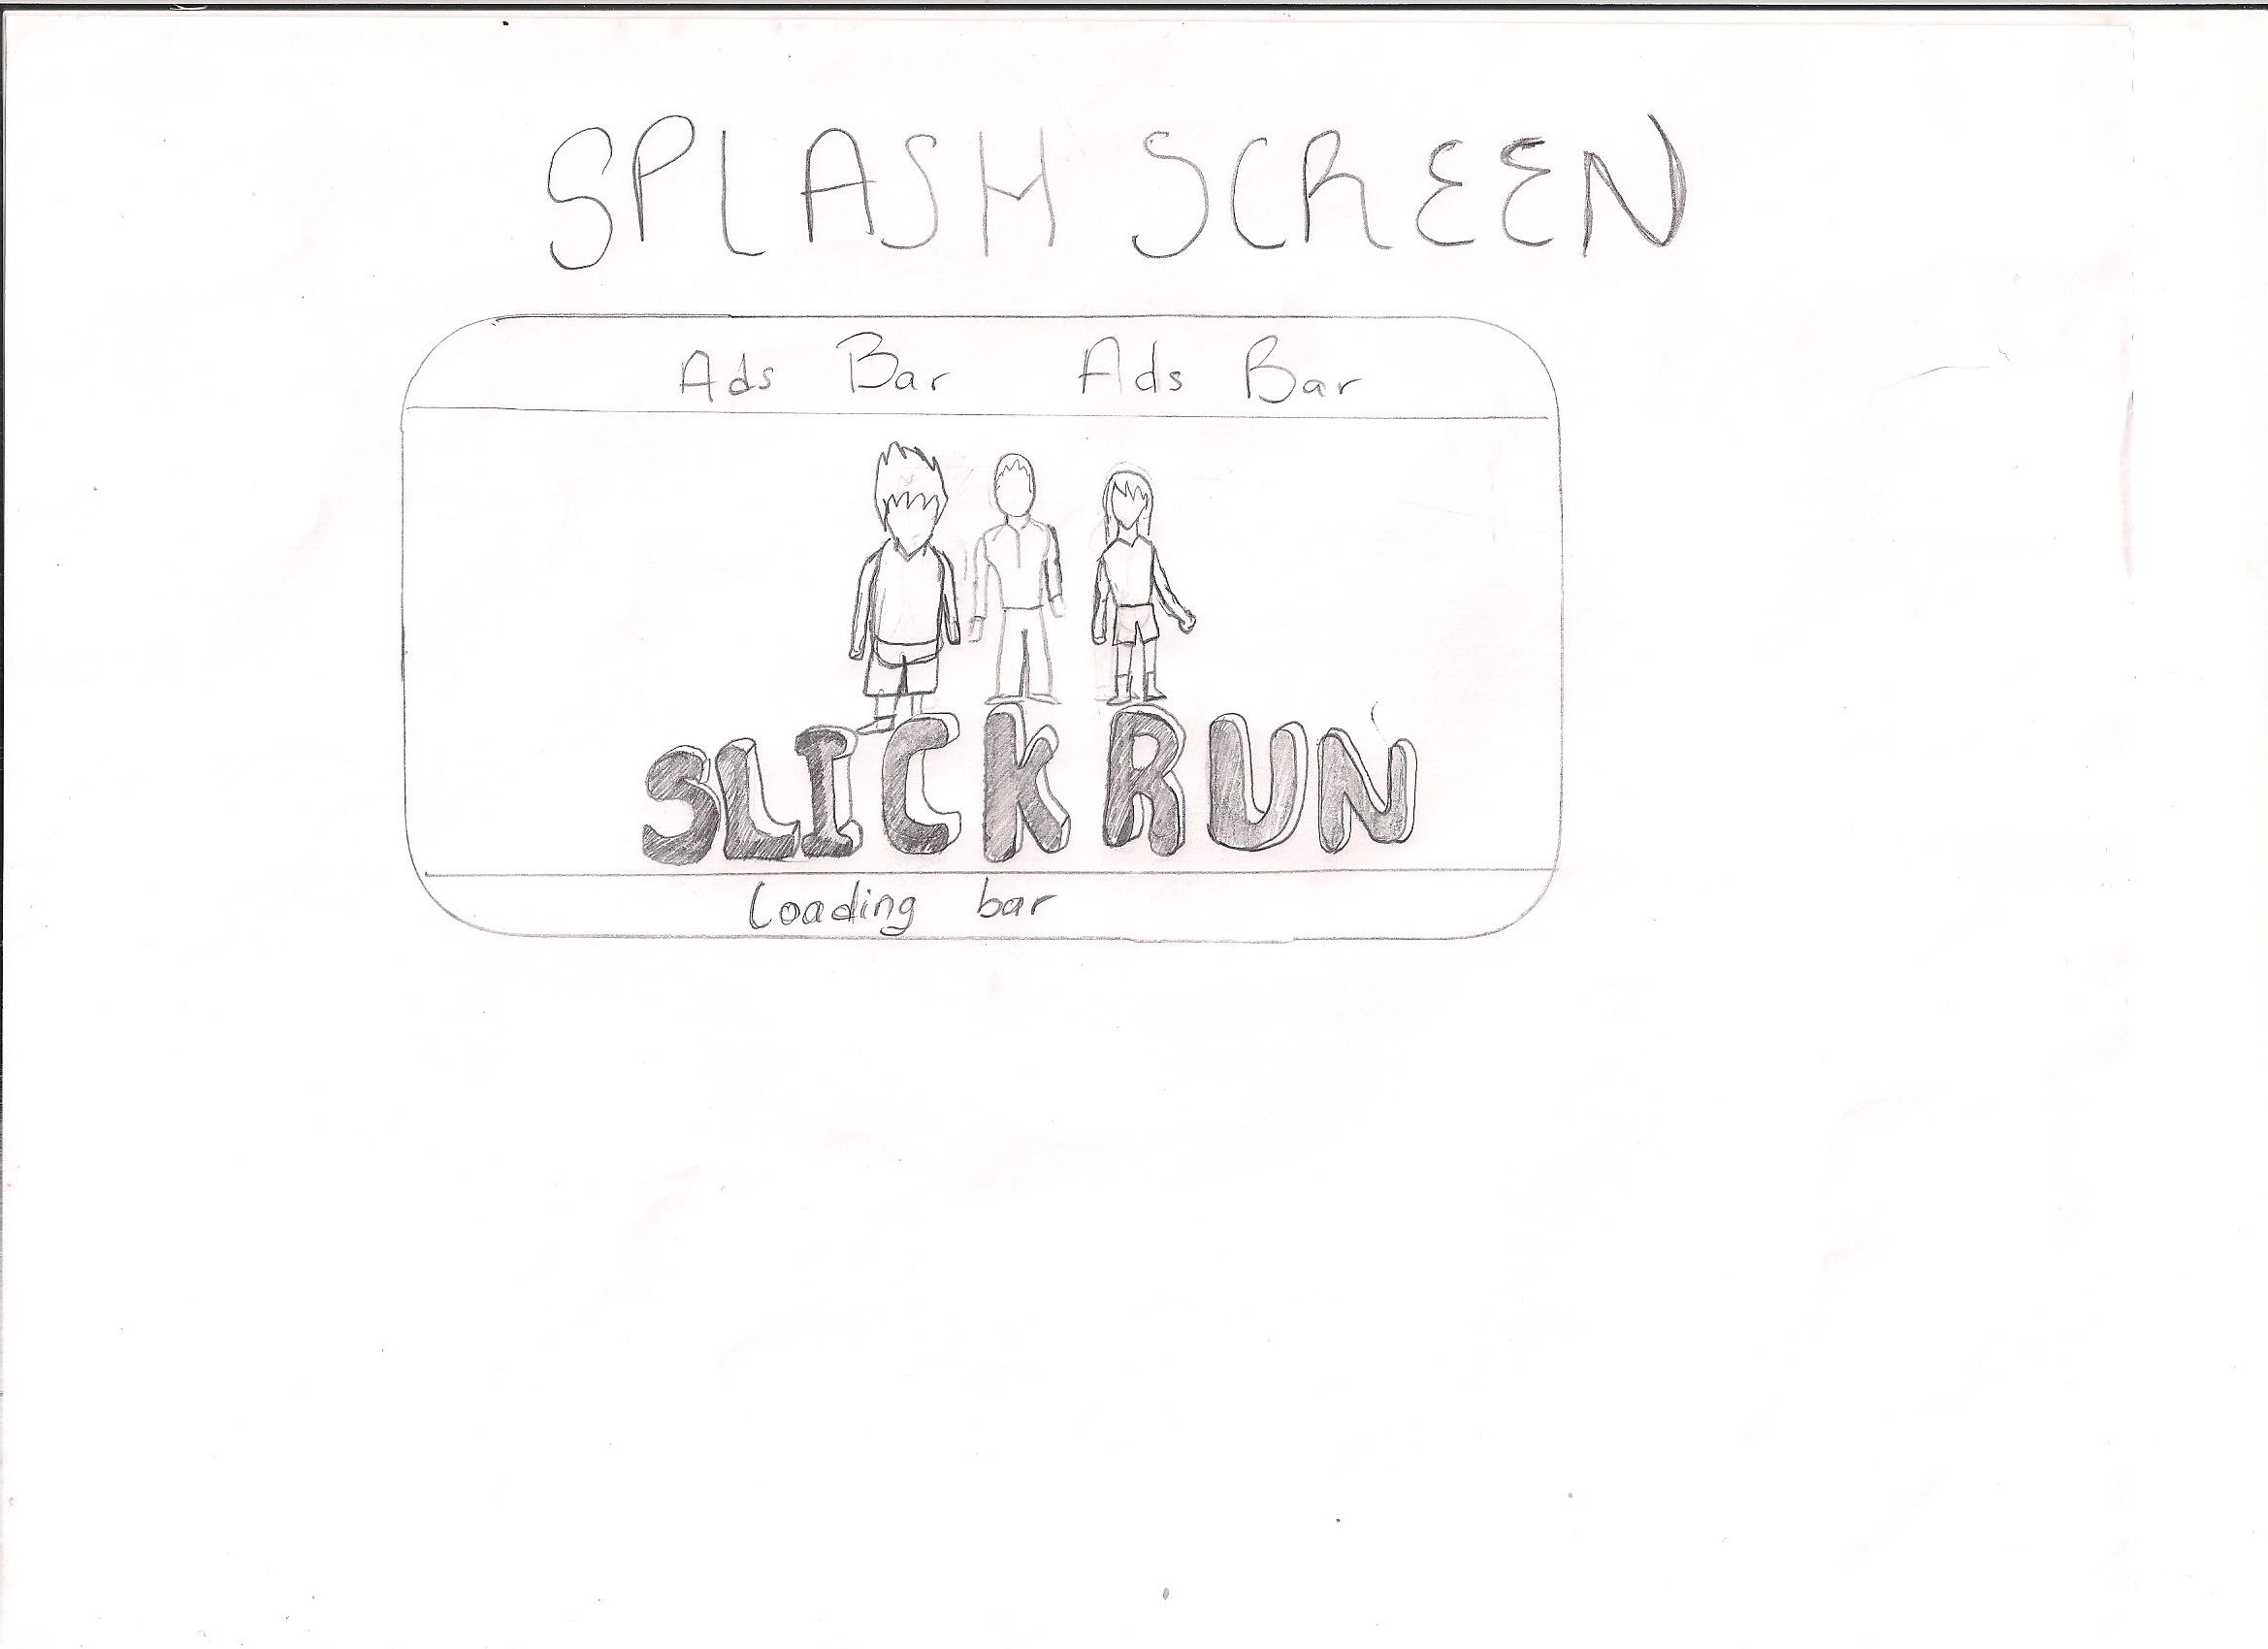 SPLASH SCREEN
Ads Bar Ads Bar
SLICK RUN
Loading bar